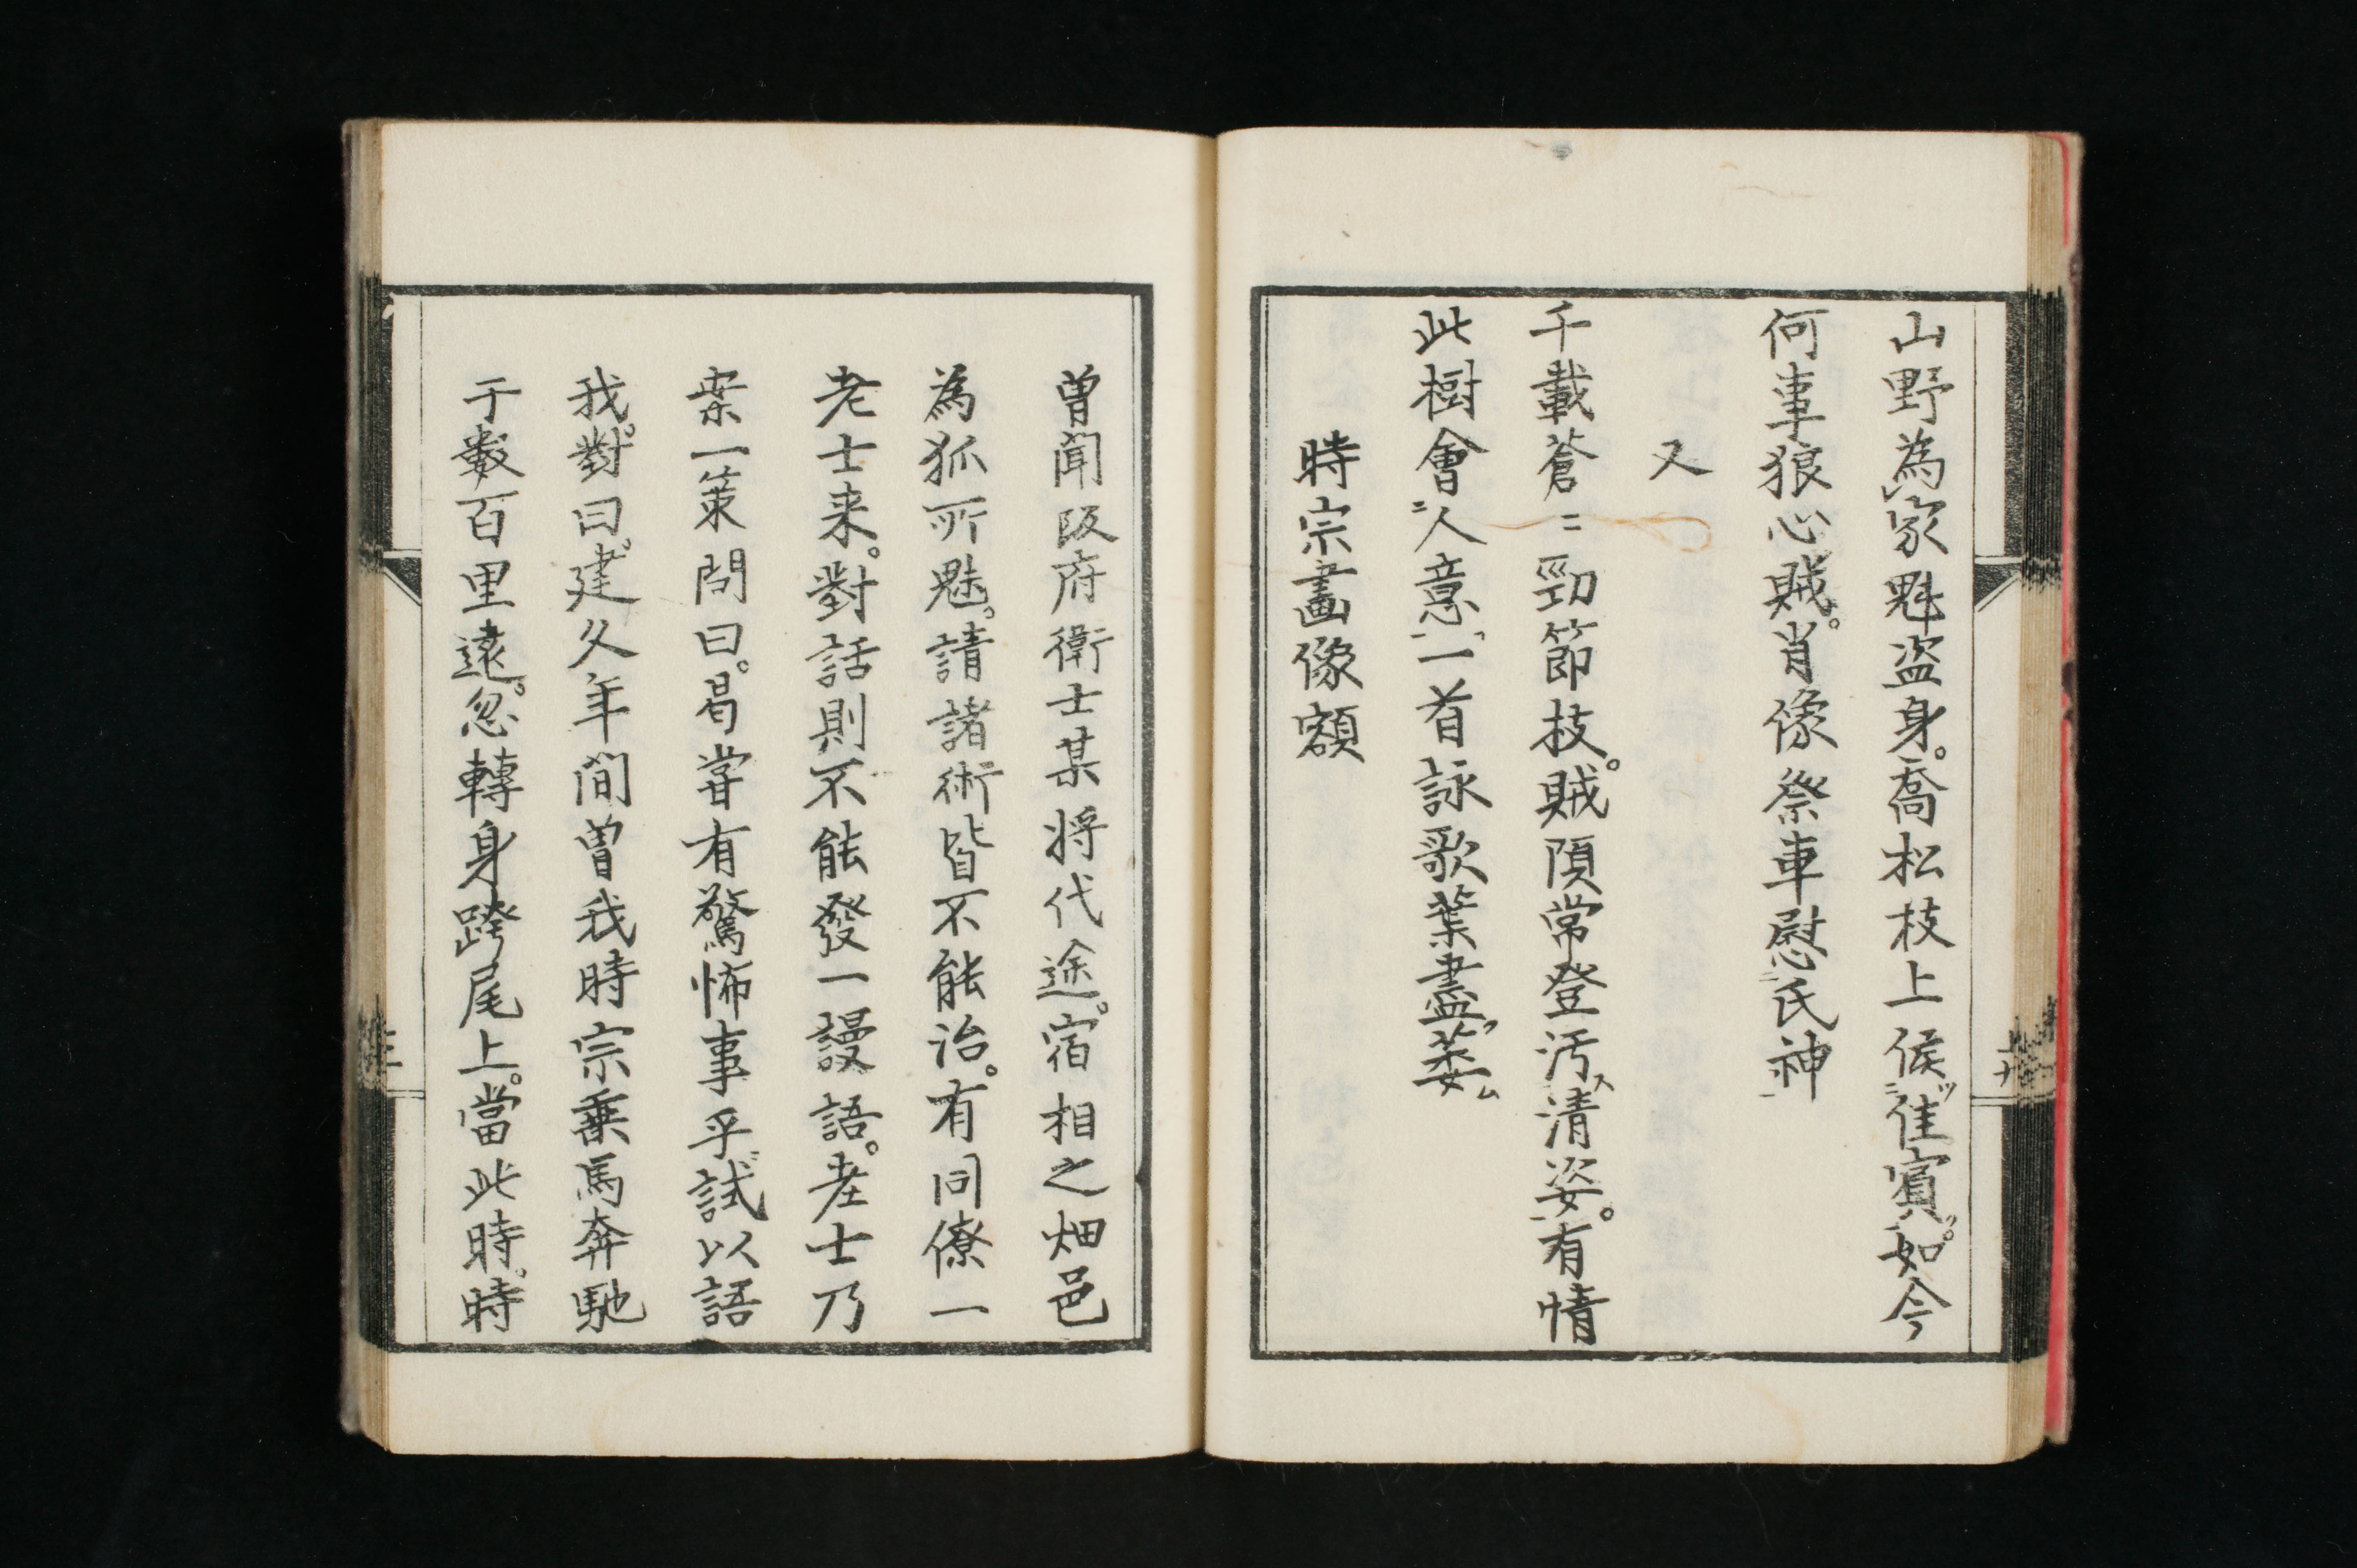 山野為家魁盗身。喬松枝上候佳賓。如今
何事狼心賊。肖像祭車慰氏神
又
千載蒼〻勁節枝。賊陨常登汚清姿。有情
此樹會人意一首詠歌葉盡萎
時宗畫像額
曽聞阪府衛士某将代途。宿相之畑邑
為狐所魅。請諸術皆不能治。有同僚一
老士来。對話則不能發一謾語。老士乃
案一策問曰。曷甞有驚怖事乎試以語
我。對曰。建久年间曽我時宗乗馬奔馳
于數百里遠。忽轉身跨尾上。當此時。時